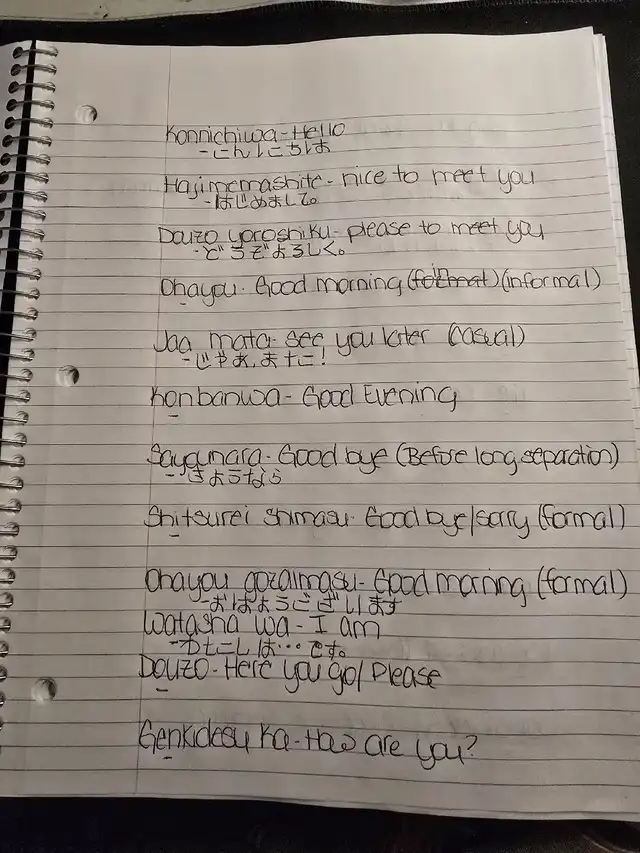 Konnichiwa-Hello
-こんにちは
Hajimemashite- nice to meet you
-はじめまして。
Douzo yoroshiku- please to meet you
-どうぞよろしく。
Ohayou- Good morning (formal) (informal)
-
Jaa mata- see you later (casual)
-じゃあ、またこ!
Konbanwa- Good Evening
-
Sayounara- Good bye (Before long separation)
-さようなら
Shitsurei shimasu- Good bye/sorry (formal)
-
Ohayou gozaimasu- Good morning (formal)
-おはようございます
Watasha wa- I am
-わたこしは...です。
Douzo- Here you go/ Please
-
Genkidesu ka- How are you?
-